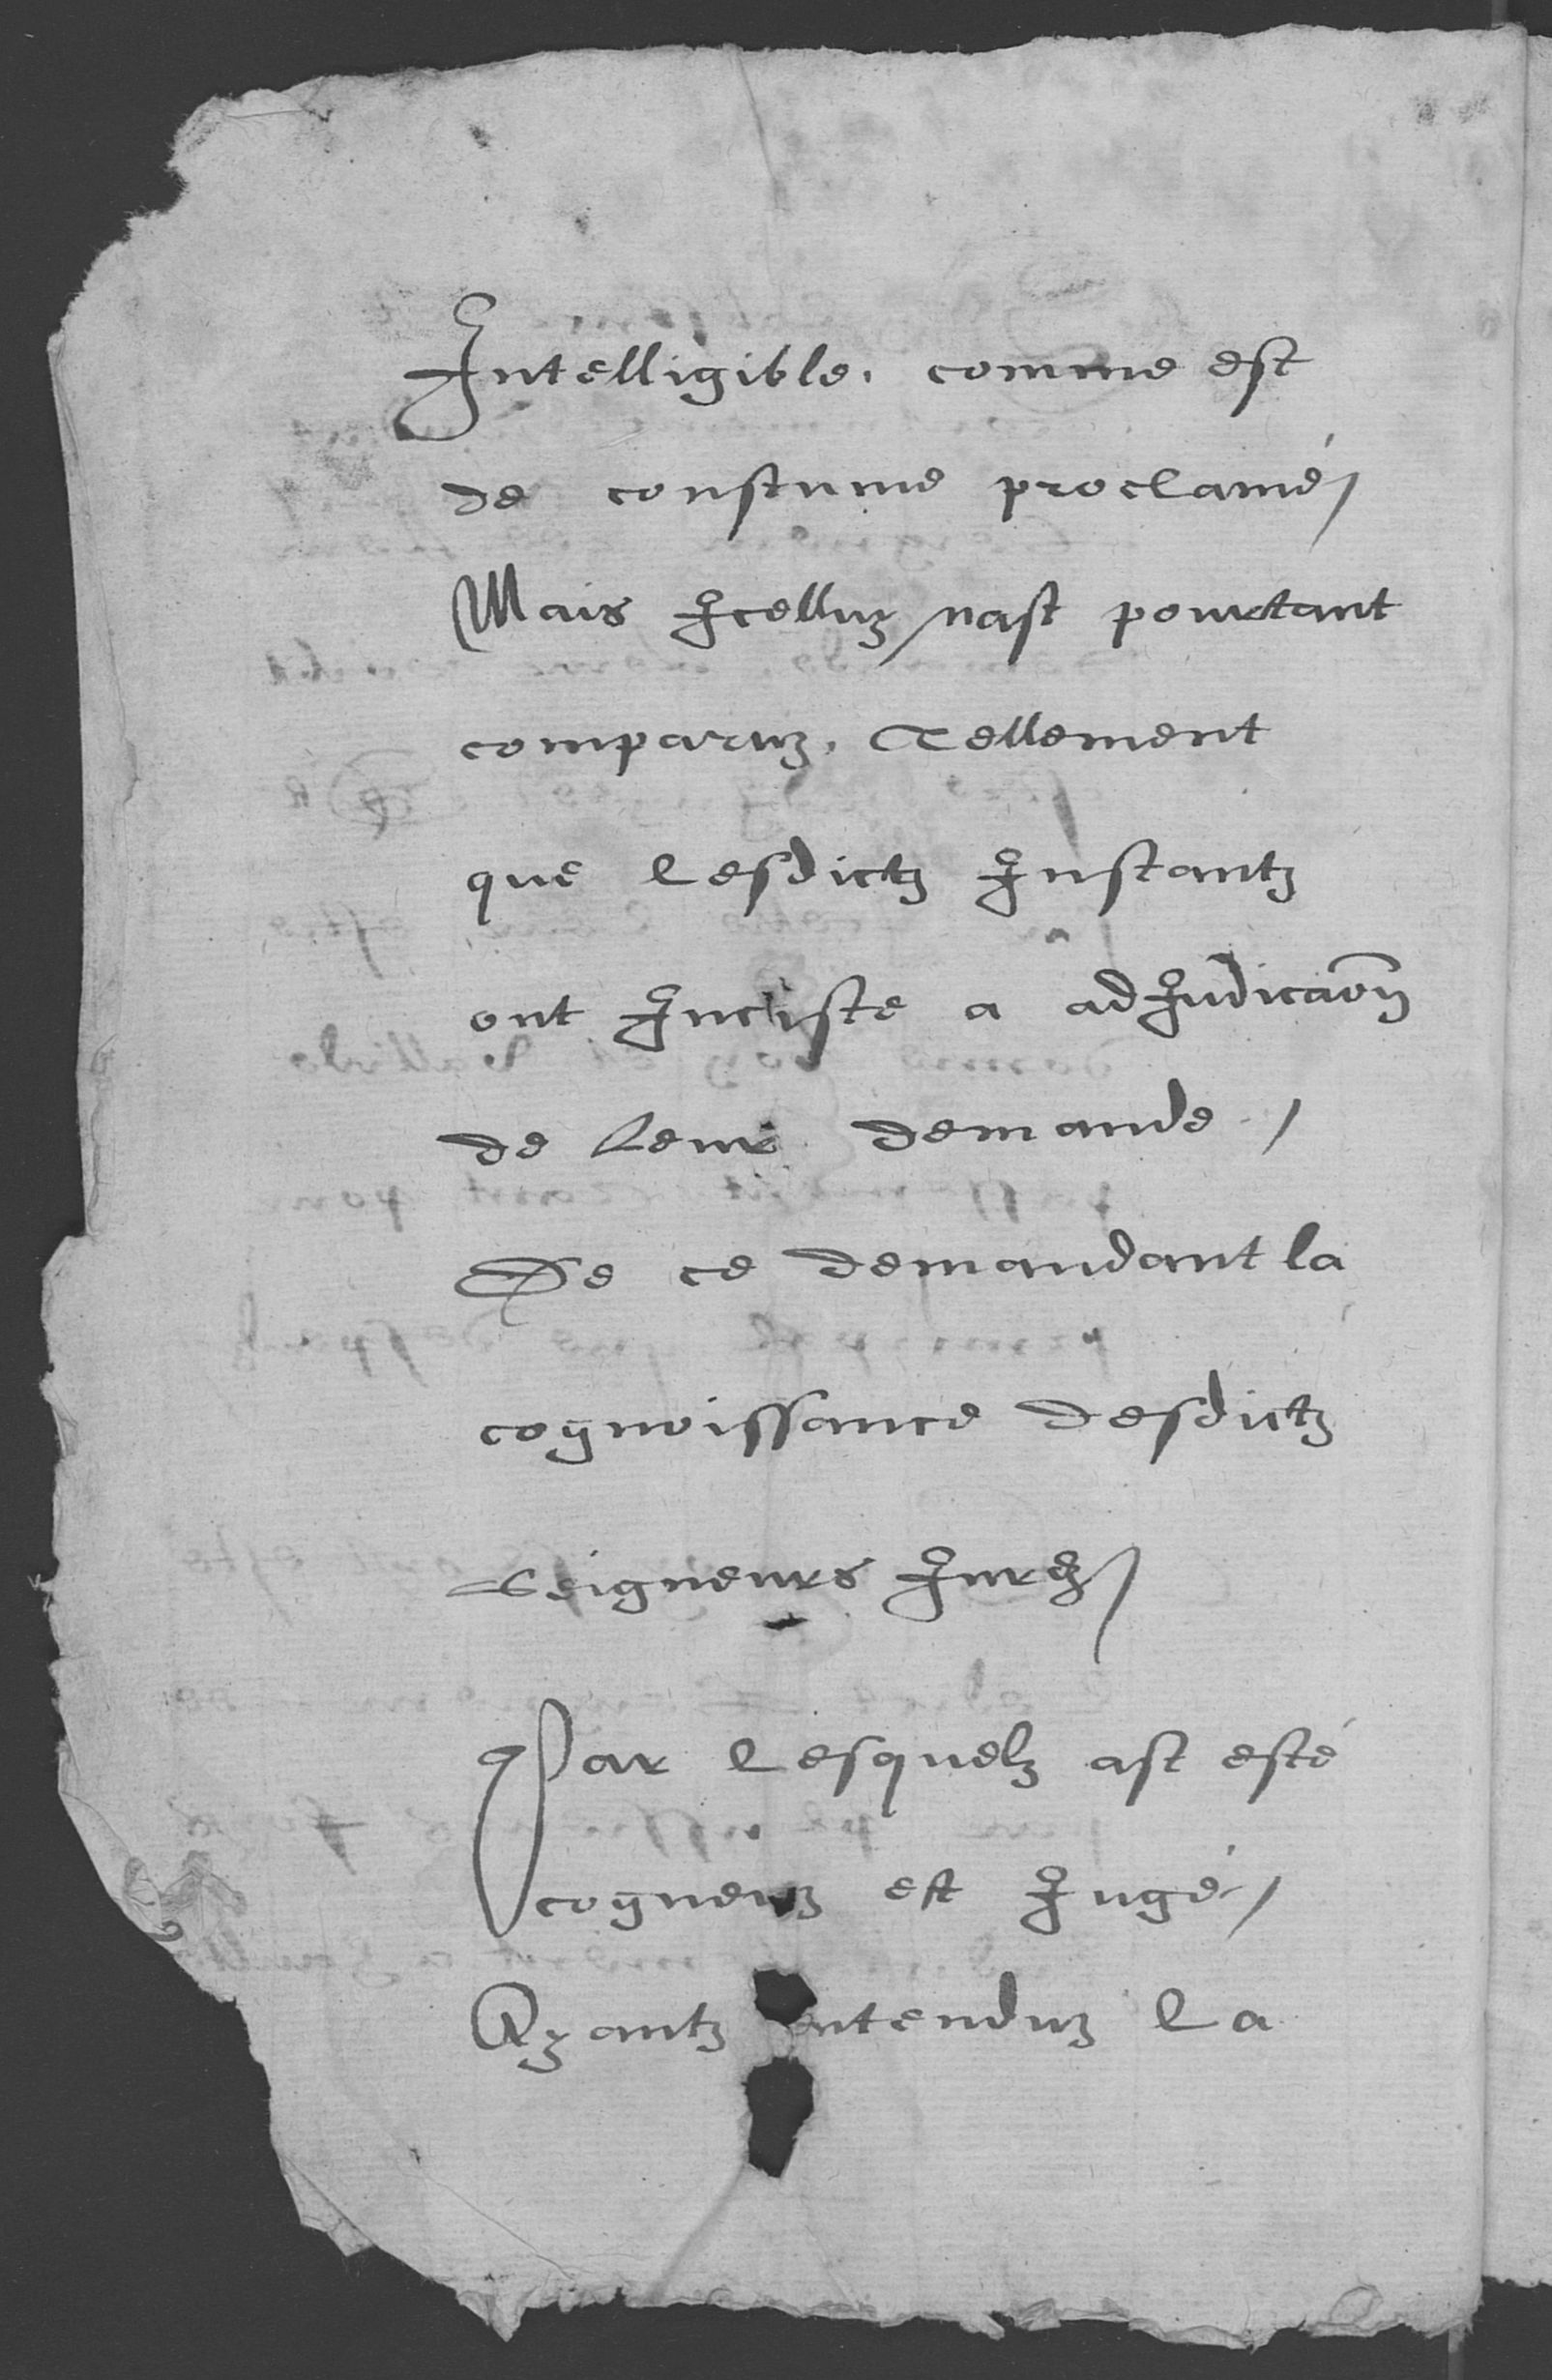 Intelligible. comme est
de constume proclamé/
Mais Icelluz nast pourtant
comparuz. Tellement
que Lesdictz Instantz
ont Inciste a adJudicaõn
de Leur demande /
De ce demandant la
cognoissance desdictz
Seigneurs Jurez/
Par Lesquelz ast esté
cogneuz est Jugé/
Ayantz entenduz La